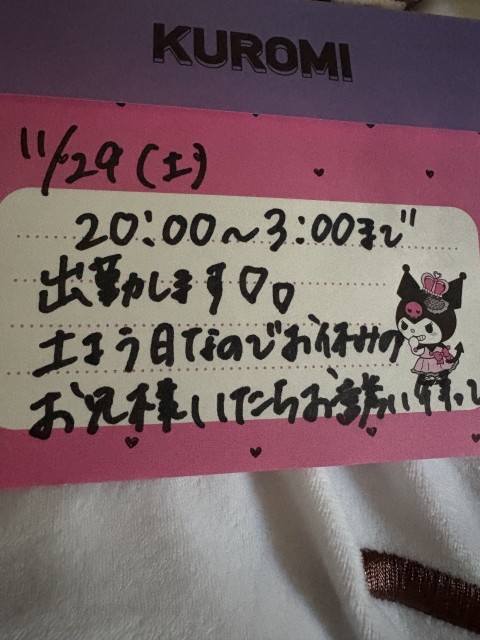 KUROMI
11/29(土)
20:00~3:00まで
出勤します♡。
土よう日なのでお休みの
お兄様いたらお誘い待っ